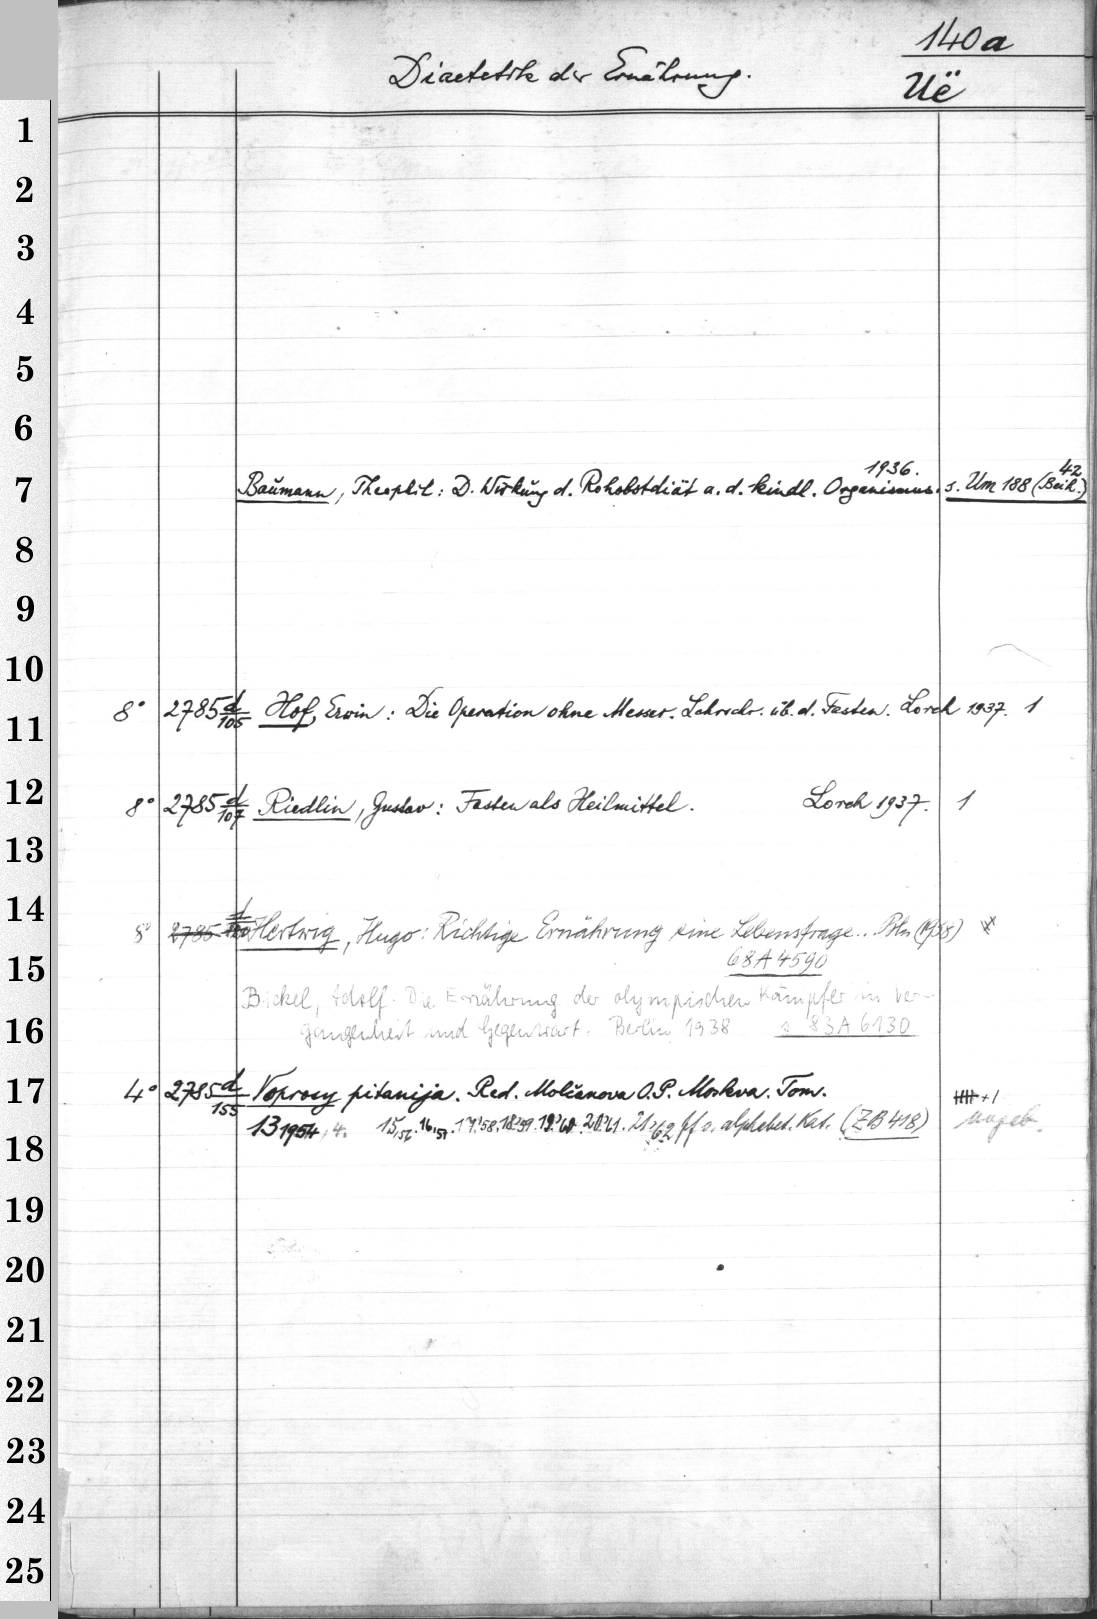 140a
Diaetetik der Ernährung.
Uë
1
2
3
4
5
6
7
1936.
42
Baumann, Theophil: D. Wirkung d. Rohobstdiät a. d. kindl. Organismus. s. Um 188 (Beih.)
8
9
10
8° 2785 d/105 Hof, Erwin: Die Operation ohne Messer. Lehrschr. üb. d. Fasten. Lorch 1937. 1
11
12
8° 2785 d/107 Riedlin, Gustav: Fasten als Heilmittel. Lorch 1937. 1
13
14
8° 2785 d/120 Hertwig, Hugo: Richtige Ernährung eine Lebensfrage.. Bln (1938)
68 A 4590
15
Bickel, Adolf. Die Ernährung der olympischen Kämpfer in Ver-
gangenheit und Gegenwart. Berlin 1938 s 83 A 6130
16
17
4° 2785 d/155 Voprosy pitanija. Red. Molčanova O.P. Moskva. Tom.
13 1954, 4. 15,56. 16,57. 17,'58. 18,'59. 19,'60. 20,'61. 21,'62 ff s. alphabet. Kat. (ZB 418) ungeb.
18
19
20
21
22
23
24
25